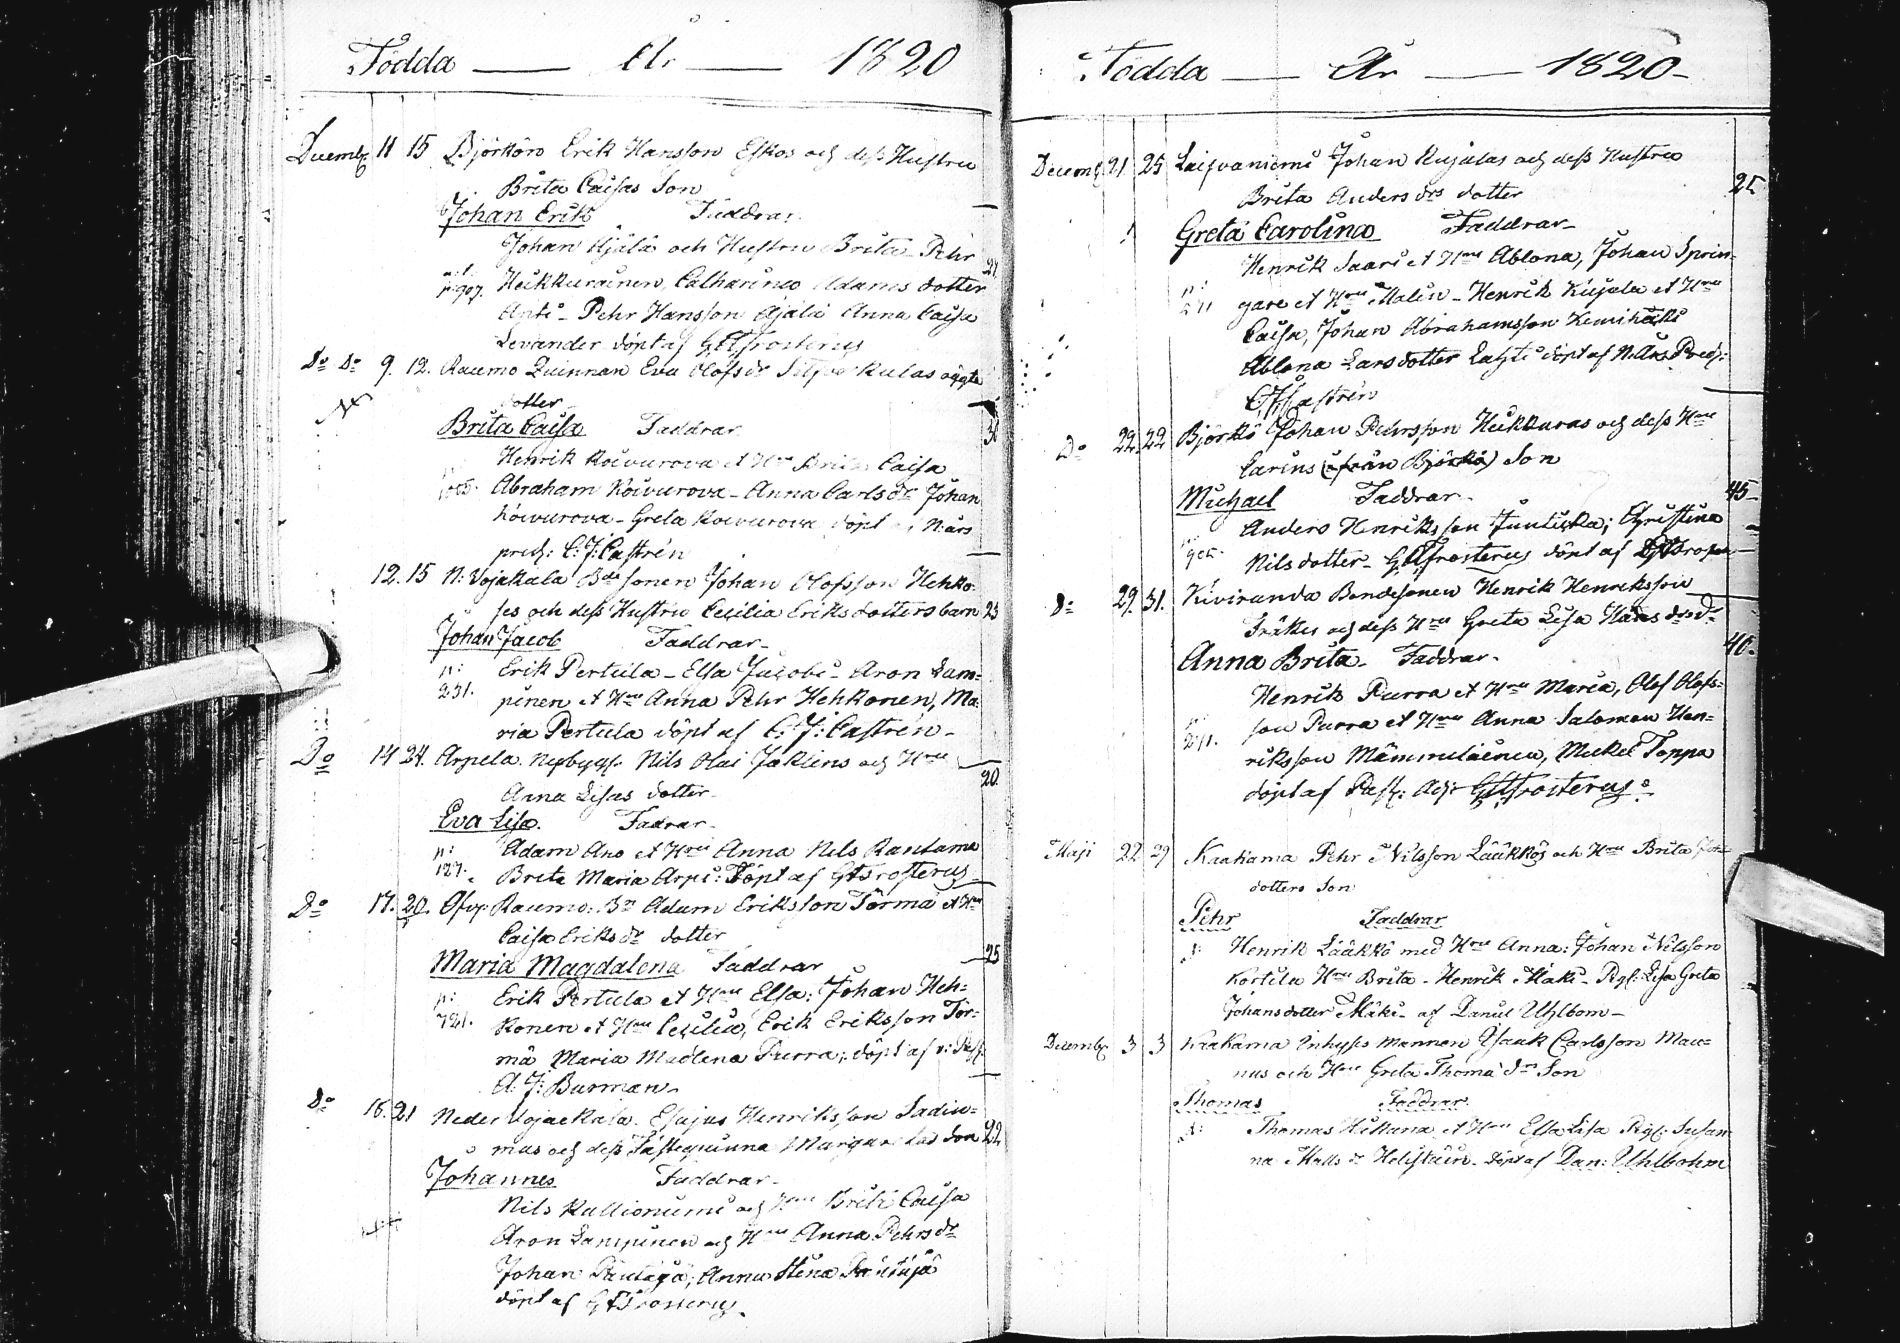 Födda — År — 1820
Decembr 11 15 Björkön Erik Hansson Eskos och dess Hustru
Brita Caisas Son
Johan Erik Faddrar.
Johan Kjälä och Hustru Brita Pehr 27
p. 907. Heikkurainen, Catharina Adams dotter
Anti - Pehr Hansson Ajälä Anna Caisa
Levander döpt af G A Frosterus
Do Do 9. 12. Raumo Quinnan Eva Olofs dr oägta
dotter
Brita Caisa Faddrar 30
Henrik Koivurova et Hru Brita Caisa
Abraham Koivurova - Anna Carls dr Johan
Koivurova - Greta Koivurova döpt N: års
pred: C: J: Castrén
12. 15 N: Vojakala Bde sonen Johan Olofsson Hehko-
jes och dess Hustru Cecilia Eriks dotters barn 23
Johan Jacob Faddrar -
p: Erik Pertula - Elsa Jacobi - Aron Lam=
231. pinen et Hru Anna Pehr Hehkonen, Ma=
ria Pertula döpt af C: J: Castrén -
Do 14 24. Arpela Nybygg. Nils Olai Jäklens och Hru
Anna Lisas dotter - 20
Eva Lisa. Fadrar -
p: Adam Aho et Hru Anna Nils Rantama
127. Brita Maria Arpi: Döpt af G A Frosterus
Do 17. 20. Öfv: Raumo: Bn Adam Eriksson Törmä et Hru
Caisa Eriks dr dotter
Maria Magdalena Faddrar 25
p: Erik Pertula et Hru Elsa: Johan Heh=
721. konen et Hru Cecilia, Erik Eriksson Tör=
mä Maria Madlena Purra; döpt af v: Past:
A: J: Burman -
Do 16. 21 Neder Vojackala. Esajas Henriksson Sadin=
mas och dess Fästequinna Margaretas Son 22
Johannes Faddrar -
Nils Kallioniemi och Hru Brita Caisa
Aron Lampinen och Hru Anna Pehrs dr
Johan; Anna Stena
döpt af G A Frosterus
Födda — År — 1820 -
Decemb 21 25 Laisvaniemi Johan Kujalas och dess Hustru
Brita Anders drs dotter 25
Greta Carolina Faddrar -
Henrik Saari et Hru Ablona, Johan Sprin-
p: 211 gare et Hru Malin - Henrik Kujala et Hru
Caisa, Johan Abrahamsson Kemihaki
Ablona Lars dotter Lahti döpt af N. års Pred:
C J Castrén
Do 22. 22 Björkö Johan Pehrsson Heikkuras och dess Hru
Carins (ifrån Björkö) Son
Michael Faddrar - 45 -
Anders Henriksson Juntikka; Christina
Nils dotter - G A Frosterus döpt af
Do 29. 31. Kiviranda Bondesonen Henrik Henriksson
Fräkis och dess Hru Greta Lisa Hans drs dr
Anna Brita - Faddrar - 40 -
Henrik Purra et Hru Maria, Olof Olofs=
son Purra et Hru Anna Salomon Hen=
riksson Mämmiläinen, Mickel Toppa
döpt af Past: Adj: G A Frosterus
Maji 22 29 Kaakama Pehr Nilsson Lääkkös och Hru Brita
dotters Son
Pehr Faddrar
Henrik Lääkkö med Hru Anna: Johan Nilsson
Kortila Hru Brita - Henrik Mäki - Pig: Lisa Greta
Johans dotter Mäki - af Daniel Uhlbom -
Decembr 3 3 Kaakama Inhyses mannen Isaak Carlsson Mau=
nus och Hru Greta Thomä dr Son
Thomas Faddrar.
Thomas Hiltuna et Hru Elsa Lisa Pig: Susan
na Matts dr Helistein - döpt af Dan: Uhlbohm